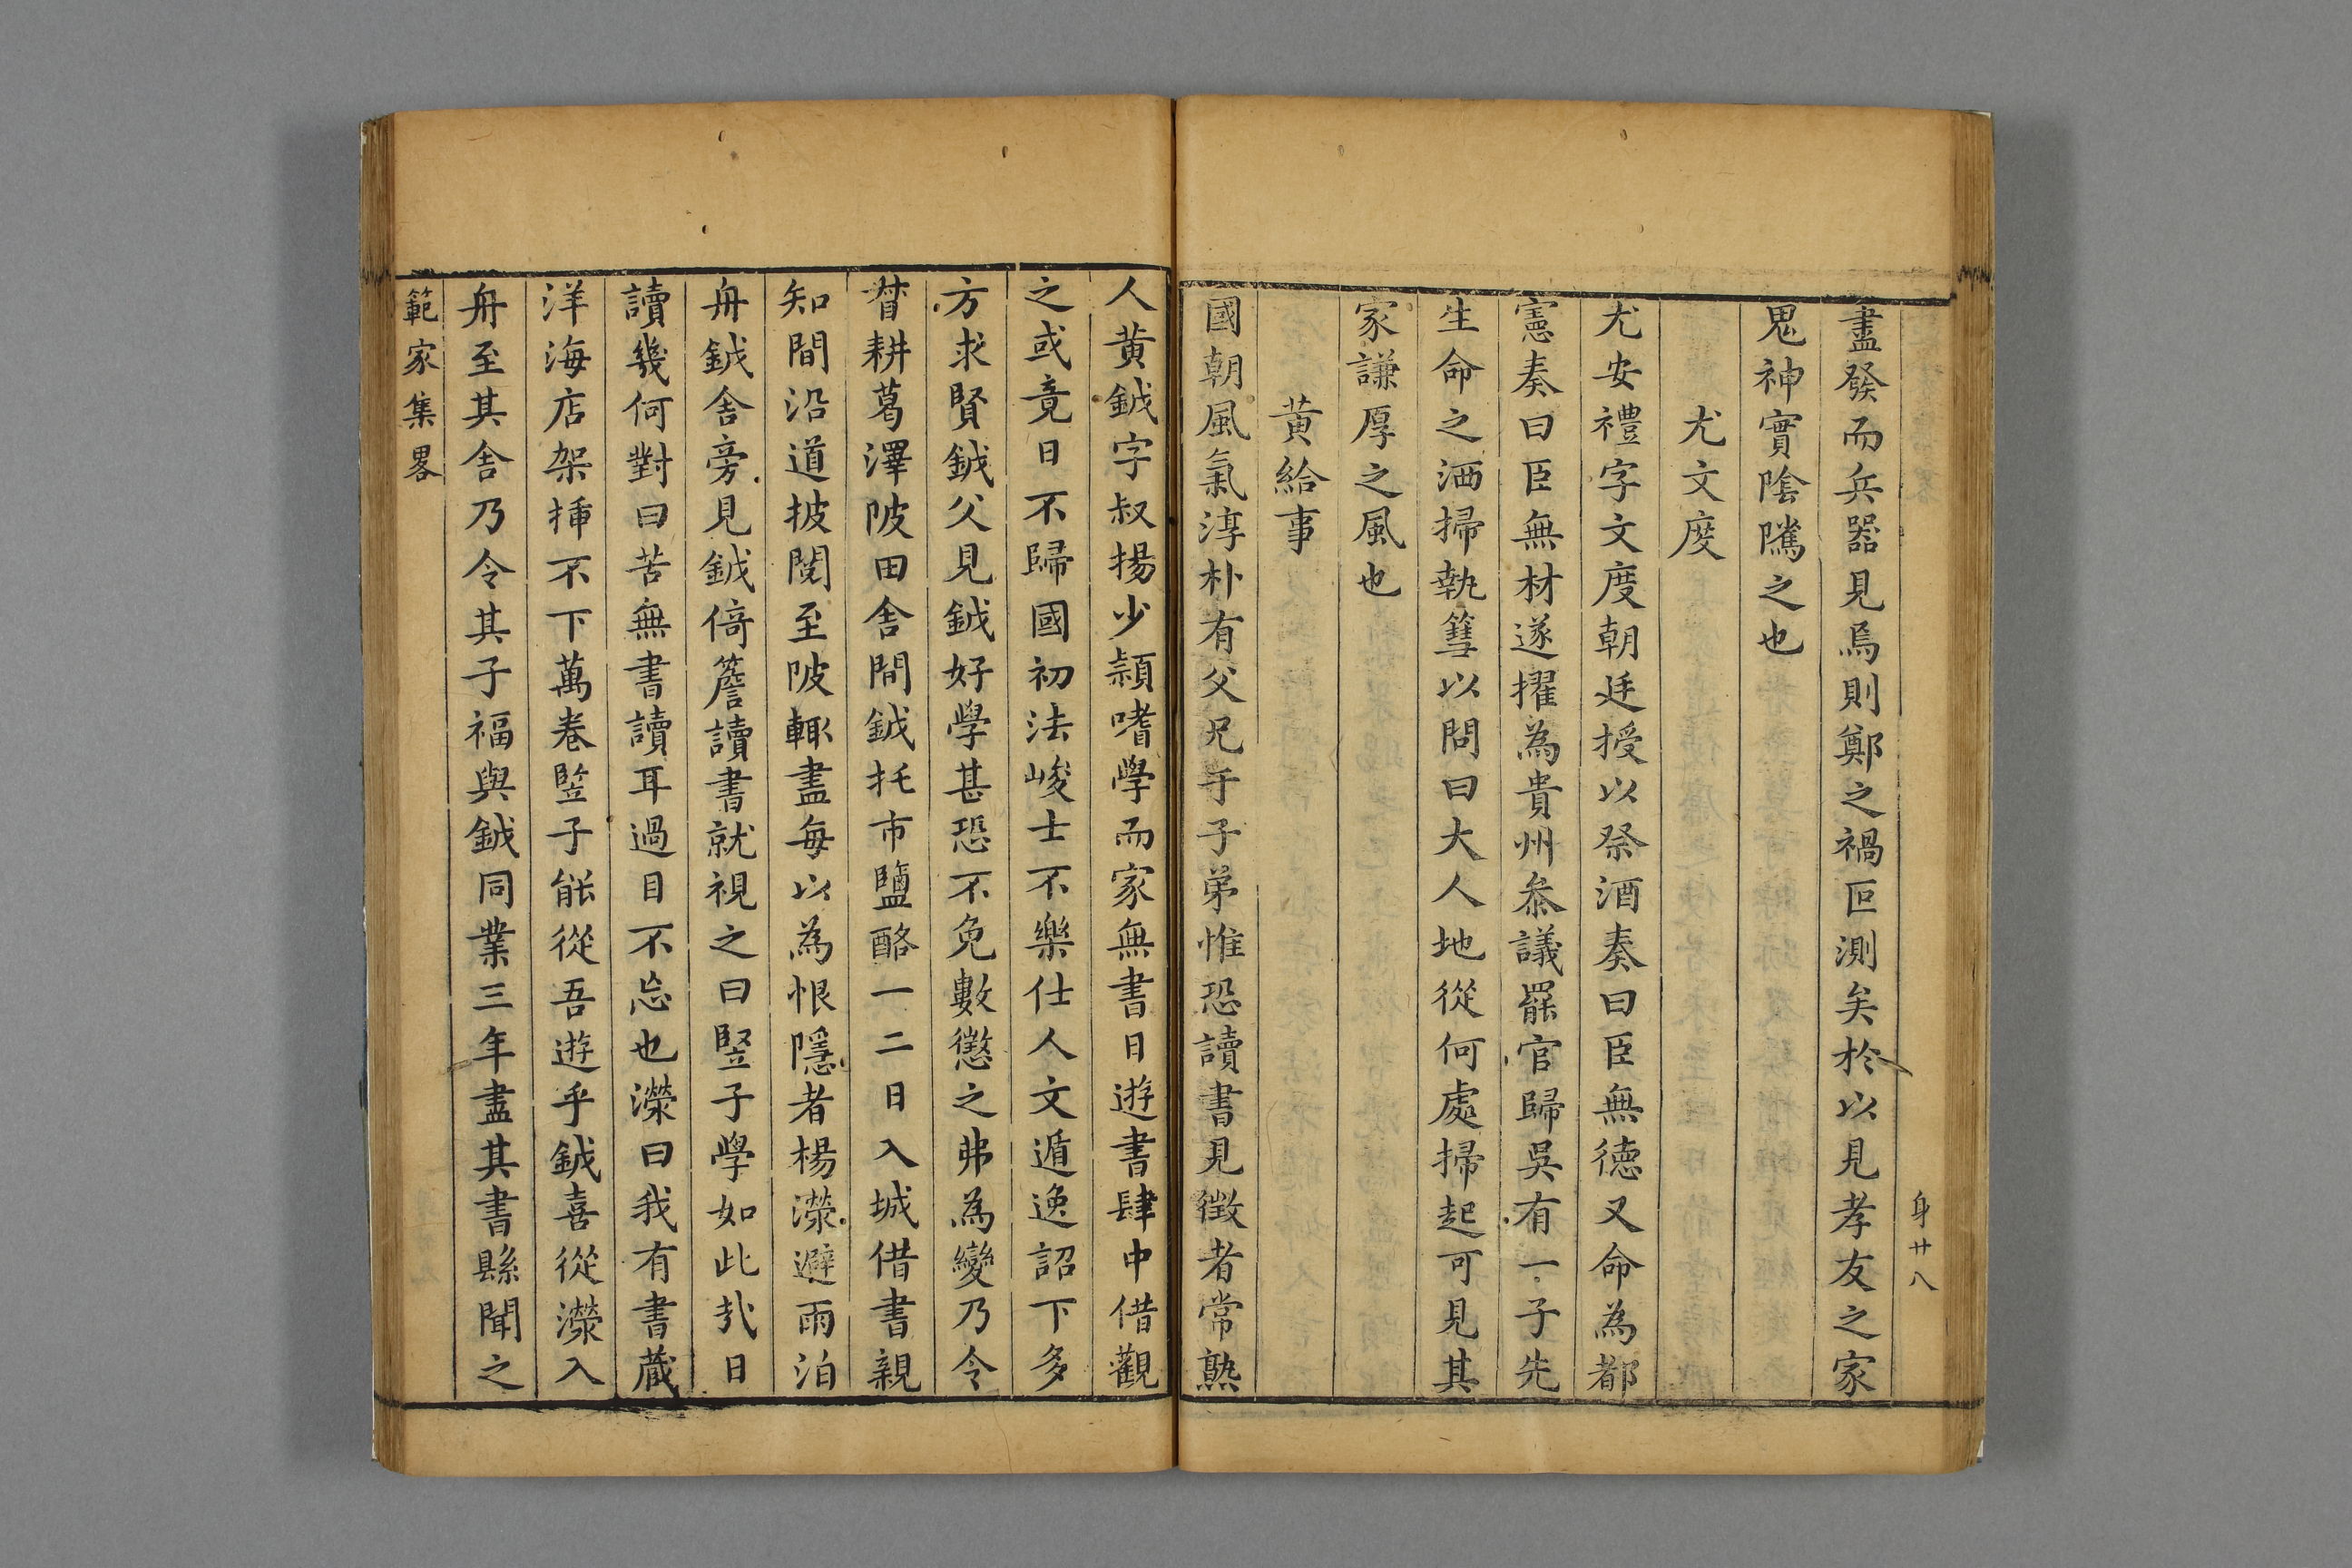 身廿八
盡發而兵器見焉則鄭之禍叵測矣於以見孝友之家
鬼神實陰隲之也
尤文度
尤安禮字文度朝廷授以祭酒奏曰臣無德又命為都
憲奏曰臣無材遂擢為貴州叅議罷官歸吳有一子先
生命之洒掃執篲以問曰大人地從何處掃起可見其
家謙厚之風也
黃給事
國朝風氣淳朴有父兄于子弟惟恐讀書見徵者常熟
人黃鉞字叔揚少頴嗜學而家無書日遊書肆中借觀
之或竟日不歸國初法峻士不樂仕人文遁逸詔下多
方求賢鉞父見鉞好學甚恐不免數懲之弗為變乃令
督耕葛澤陂田舎間鉞托市鹽酪一二日入城借書親
知間沿道披閱至陂輙盡每以為恨隱者楊濴避雨泊
舟鉞舎旁見鉞倚簷讀書就視之曰豎子學如此㢤日
讀幾何對曰苦無書讀耳過目不忘也濴曰我有書藏
洋海店架揷不下萬卷豎子能從吾遊乎鉞喜從濴入
舟至其舎乃令其子福與鉞同業三年盡其書縣聞之
範家集畧